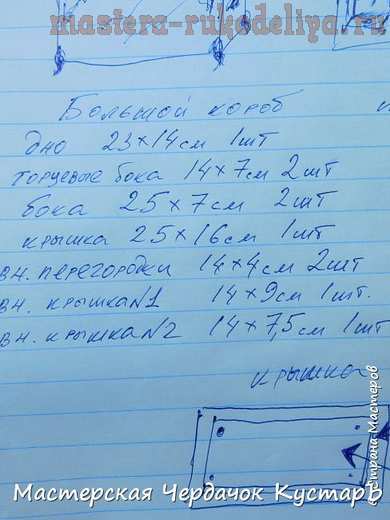 mastera-rukodeliya.ru
Большой короб
дно 23×14см 1шт
торцевые бока 14×7см 2шт
бока 25×7см 2шт
крышка 25×16см 1шт
вн. перегородки 14×4см 2шт
вн. крышка N1 14×9см 1шт.
вн. крышка N2 14×7,5см 1шт
крышка
Мастерская Чердачок Кустарь
Страна Мастеров